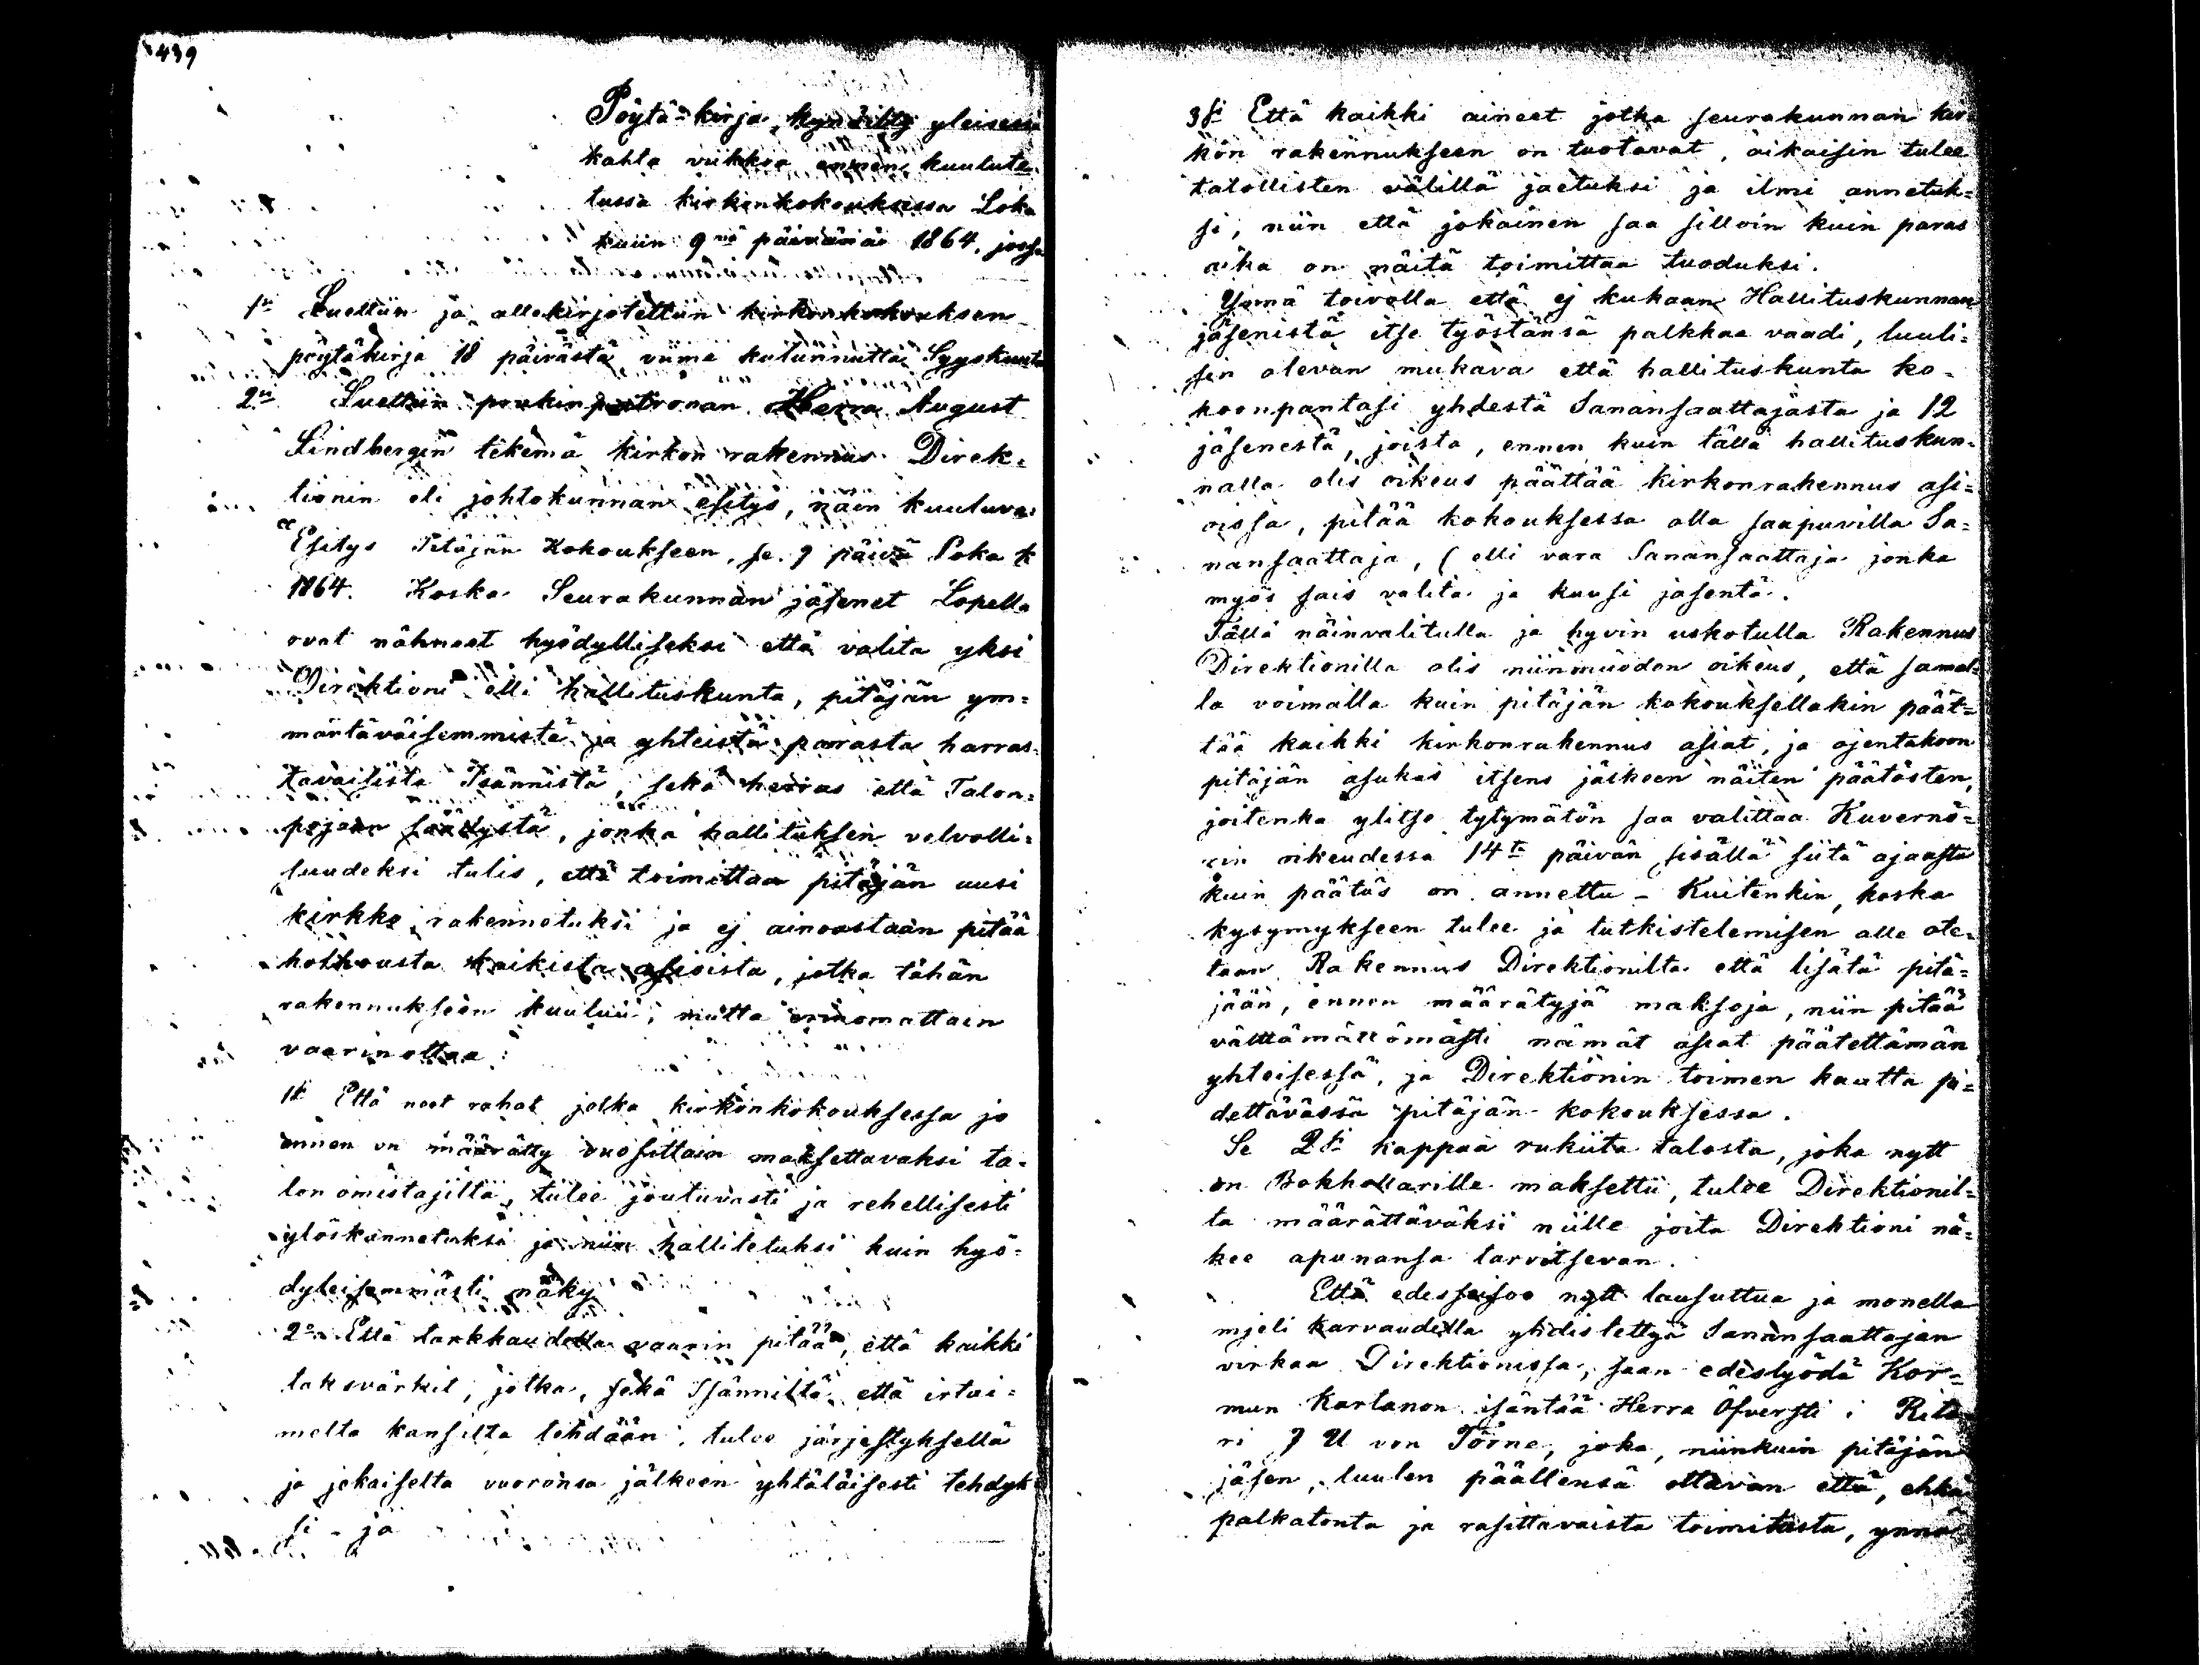 439
Pöytä-kirja, hyväilty yleisessä
kahta viikkoa ennen kuulute-
tussa kirkonkokouksessa Loka
kuun 9nä päivänä 1864, jossa
1si Luettiin ja allekirjotettiin kirkonkokouksen
pöytäkirja 18 päivästä viime kulunnutta Syyskuuta
2si Luettiin prukinpatronan Herra August
Lindbergin tekemä kirkon rakennus Direk-
tionin eli johtokunnan esitys, näin kuuluva:
"Esitys Pitäjän Kokoukseen, se 9 päivä Loka k
1864. Koska Seurakunnan jäsenet Lopella
ovat nähneet hyödylliseksi että valita yksi
Direktioni elli hallituskunta, pitäjän ym-
märtäväisemmistä ja yhteistä parasta harras-
tavaisista Isännistä, sekä herras että Talon-
pojan säädystä, jonka hallituksen velvolli-
suudeksi tulis, että toimittaa pitäjän uusi
kirkko rakennetuksi ja ej ainoastaan pitää
holhousta kaikista asioista, jotka tähän
rakennukseen kuuluu, mutta erinomattain
vaarinottaa:
1si Että neet rahat jotka kirkonkokouksessa jo
ennen on määrätty vuosittain maksettavaksi ta-
lon omistajilta, tulee joutuvasti ja rehellisesti
ylöskannetuksi ja niin hallitetuksi kuin hyö-
dyleisemmästi näky
2o Että tarkkaudella vaarin pitää, että kaikki
taksvärkit, jotka, sekä Isänniltä että irtai-
melta kansilta tehdään, tulee järjestyksellä
ja jokaiselta vuoronsa jälkeen yhtäläisesti tehdyk-
si - ja
3si Että kaikki aineet jotka seurakunnan kir-
kon rakennukseen on tuotavat, aikaisin tulee
talollisten välillä jaetuksi ja ilmi annetuk-
si, niin että jokainen saa silloin kuin paras
aika on näitä toimittaa tuoduksi.
Ynnä toivolla että ej kukaan Hallituskunnan
jäsenistä itse työstänsä palkkaa vaadi, luuli-
sen olevan mukava että hallituskunta ko-
koonpantasi yhdestä Sanansaattajasta ja 12
jäsenestä, joista, ennen kuin tällä hallituskun-
nalla olis oikeus päättää kirkonrakennus asi-
oissa, pitää kokouksessa olla saapuvilla Sa-
nansaattaja, (elli vara Sanansaattaja jonka
myös sais valita ja kuusi jäsentä.
Tällä näinvalitulla ja hyvin uskotulla Rakennus
Direktionilla olis niinmuodon oikeus, että samal-
la voimalla kuin pitäjän kokouksellakin päät-
tää kaikki kirkonrakennus asiat, ja ojentakoon
pitäjän asukas itsens jälkeen näiten päätösten,
joitenka ylitse tytymätön saa valittaa Kuvernö-
rin oikeudessa 14ta päivän sisällä siitä ajasta
kuin päätös on annettu - Kuitenkin, koska
kysymykseen tulee ja tutkistelemisen alle ote-
taan Rakennus Direktionilta että lisätä pitä-
jään, ennen määrätyjä maksoja, niin pitää
välttämättömästi nämät asiat päätettämän
yhteisessä, ja Direktionin toimen kautta pi-
dettävässä pitäjän kokouksessa.
Se 2si kappaa rukiita talosta, joka nytt
on Bokhollarille maksettu, tulee Direktionil-
ta määrättäväksi niille joita Direktioni nä-
kee apunansa tarvitsevan.
Että edesseisoo nytt lausuttua ja monella
mjeli karvaudella yhdistettyä Sanansaattajan
virkaa Direktionissa, saan edeslyödä Kor-
mun Kartanon isäntää Herra Öfversti i Rita
ri J U von Törne, joka, niinkuin pitäjän
jäsen, luulen päällensä ottavan että, ehkä
palkatonta ja rasittavaista toimitusta, ynnä